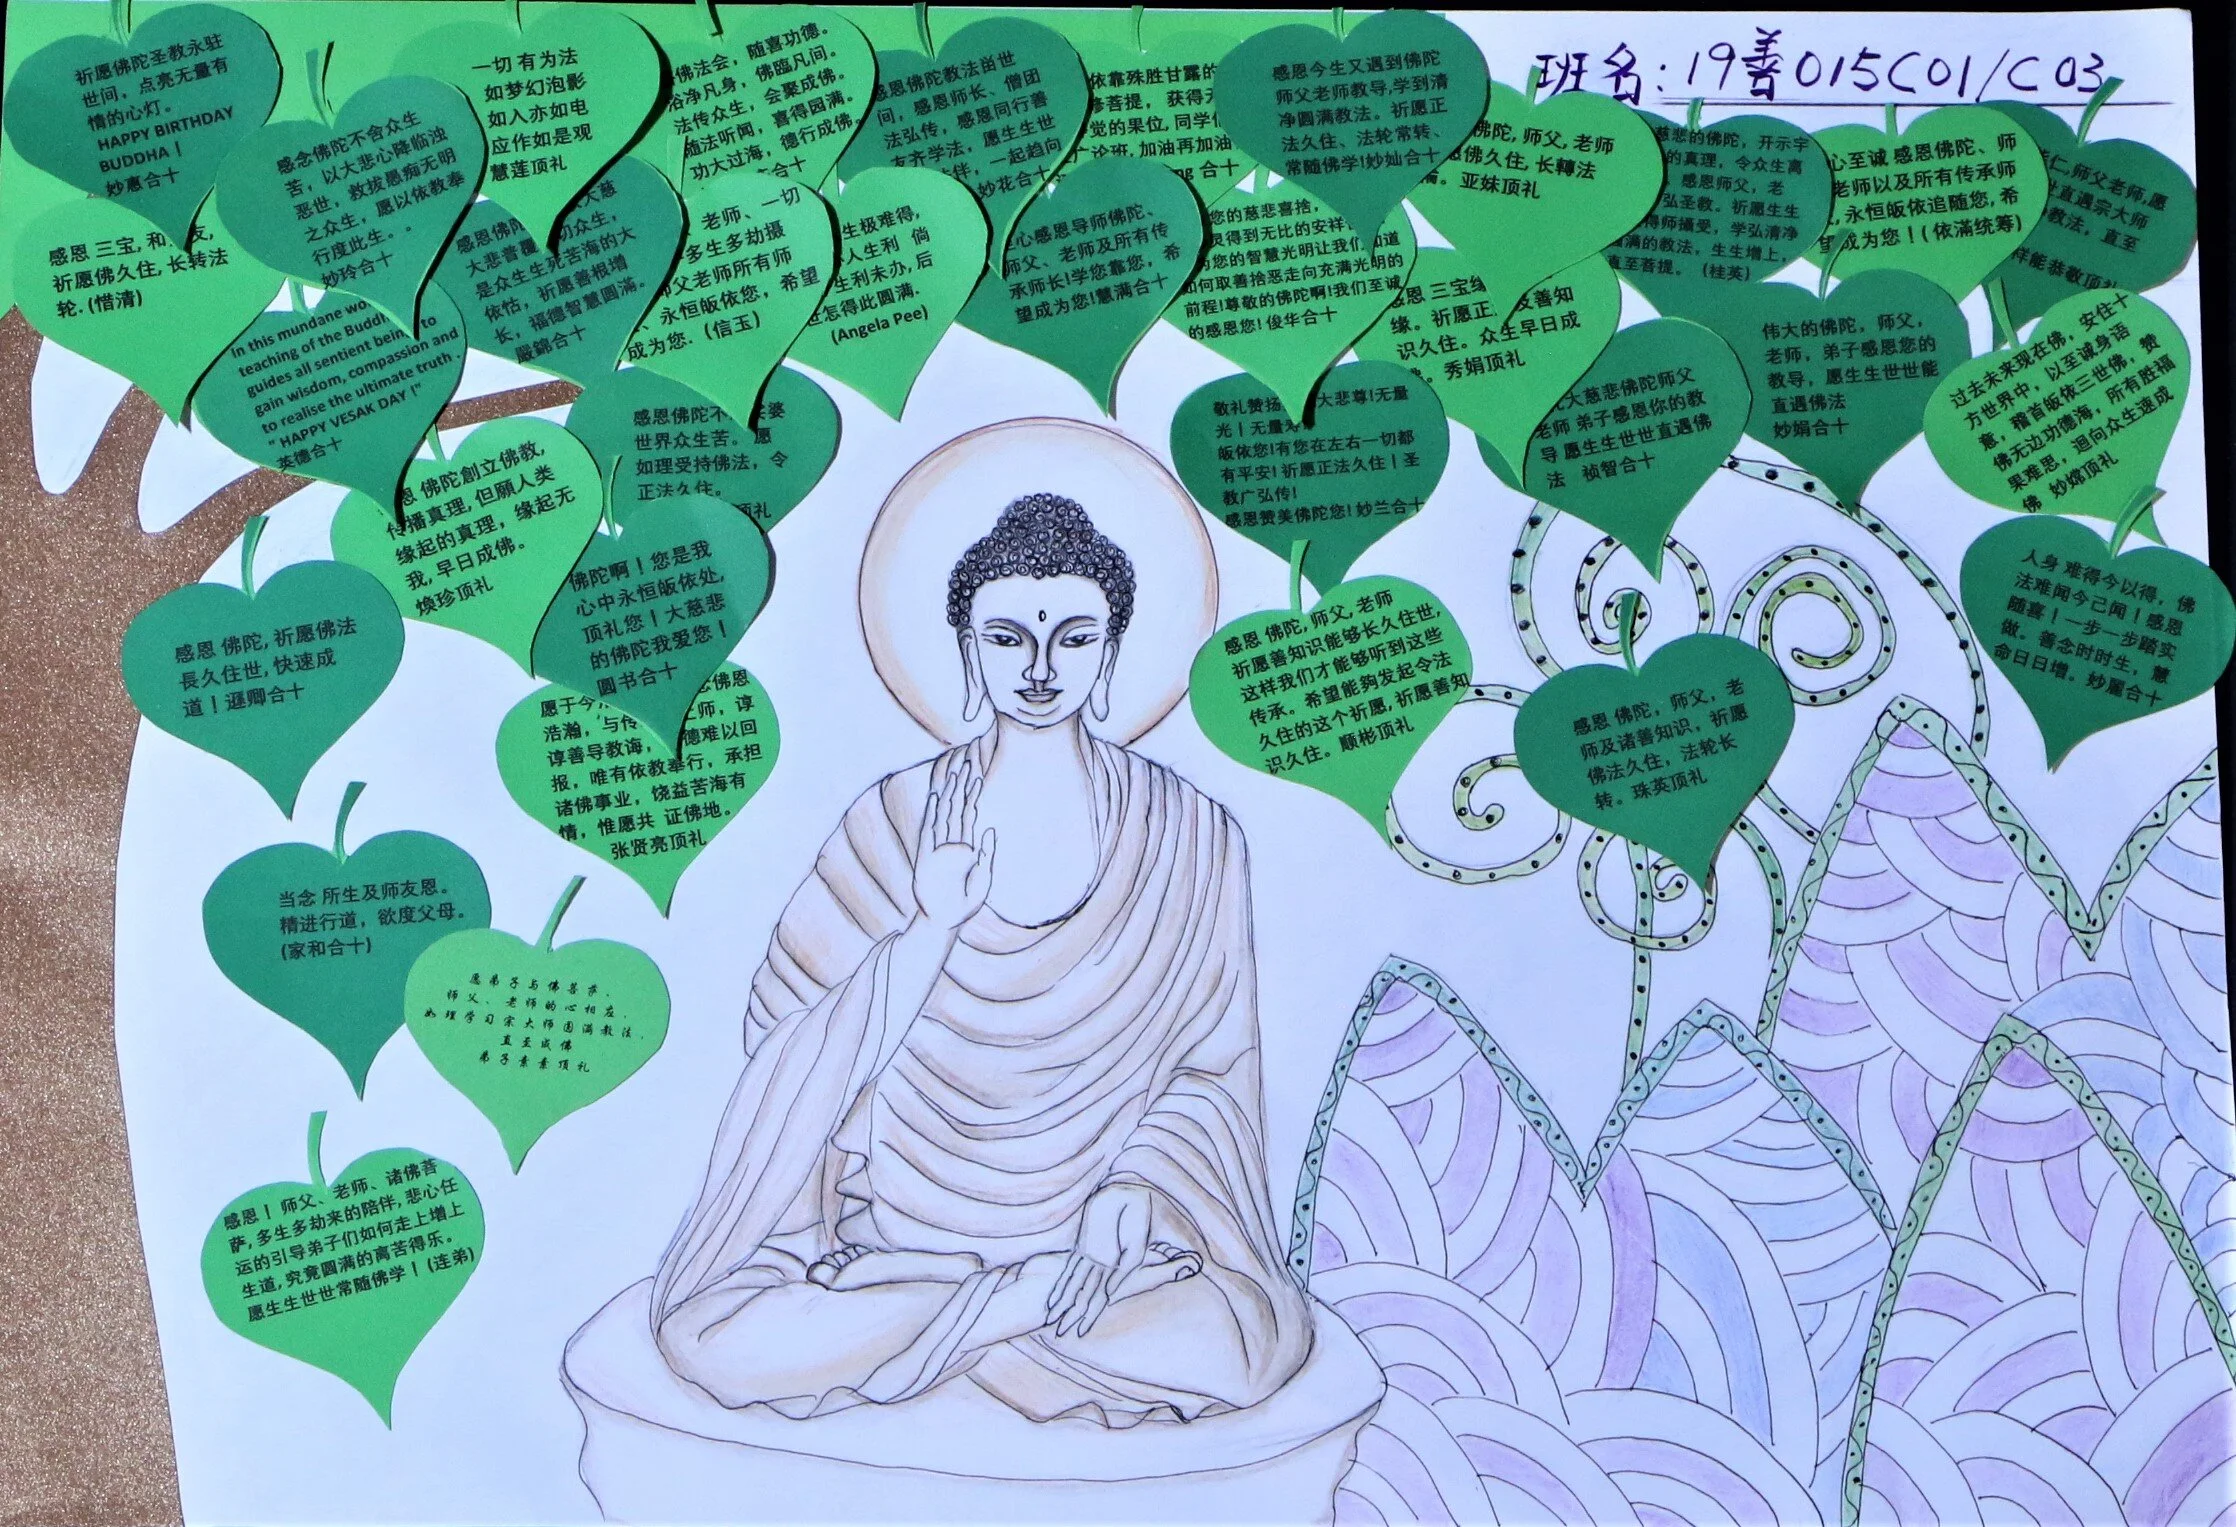 班名：19善015C01/C03
祈愿佛陀圣教永驻
世间，点亮无量有
情的心灯。
HAPPY BIRTHDAY
BUDDHA！
妙惠合十
感念佛陀不舍众生
苦，以大悲心降临浊
恶世，救拔愚痴无明
之众生，愿以依教奉
行度此生。。
妙玲合十
一切 有为法
如梦幻泡影
如入亦如电
应作如是观
慧莲顶礼
佛法会，随喜功德。
浴净凡身，佛臨凡间。
法传众生，会聚成佛。
随法听闻，喜得园满。
功大过海，德行成佛。
感恩佛陀教法出世
间，感恩师长、僧团
法弘传，感恩同行善
友齐学法，愿生生世
伴，一起趋向
妙花合十
依靠殊胜甘露的
修菩提，获得
觉的果位，同学
广论班，加油再加油
合十
感恩今生又遇到佛陀
师父老师教导，学到清
净圆满教法。祈愿正
法久住、法轮常转、
常随佛学！妙灿合十
佛陀，师父，老师
愿佛久住，长轉法
亚妹顶礼
慈悲的佛陀，开示宇
的真理，令众生离
感恩师父，老
弘圣教。祈愿生生
得师攝受，学弘清净
满的教法，生生增上，
直至菩提。（桂英）
心至诚 感恩佛陀、师
老师以及所有传承师
永恒皈依追随您，希
成为您！（依滿统筹）
师父老师，愿
直遇宗大师
教法，直至
能恭敬顶礼
感恩 三宝，和 友，
祈愿佛久住，长转法
轮。（惜清）
In this mundane wo
teaching of the Buddh
guides all sentient being to
gain wisdom, compassion and
to realise the ultimate truth .
" HAPPY VESAK DAY !"
英德合十
感恩佛陀 大慈
大悲普覆 切众生，
是众生生死苦海的大
依怙，祈愿善根增
长，福德智慧圆滿。
嚴錦合十
老师、一切
多生多劫摄
父老师所有师
永恒皈依您，希望
成为您.（信玉）
生极难得，
人生利 倘
生利未办，后
世怎得此圆满.
(Angela Pee)
心感恩导师佛陀、
师父、老师及所有传
承师长！学您靠您，希
望成为您！慧满合十
您的慈悲喜捨，
灵得到无比的安祥
为您的智慧光明让我们 知道
如何取善捨恶走向充满光明的
前程！尊敬的佛陀啊！我们至诚
的感恩您！俊华合十
感恩 三宝
缘。祈愿正 及善知
识久住。众生早日成
佛。秀娟顶礼
大慈悲佛陀师父
老师 弟子感恩你的教
导 愿生生世世直遇佛
法 祯智合十
伟大的佛陀，师父，
老师，弟子感恩您的
教导，愿生生世世能
直遇佛法
妙娟合十
过去未来现在佛，安住十
方世界中，以至诚身语
意，稽首皈依三世佛，赞
佛无边功德海，所有胜福
果难思，迴向众生速成
佛 妙嫦顶礼
恩 佛陀創立佛教，
传播真理，但願人类
缘起的真理，缘起无
我，早日成佛。
煥珍顶礼
感恩佛陀不 婆
世界众生苦。愿
如理受持佛法，令
正法久住。
顶礼
敬礼赞扬 大悲尊！无量
光！无量寿
皈依您！有您在左右一切都
有平安！祈愿正法久住！圣
教广弘传！
感恩赞美佛陀您！妙兰合十
佛陀啊！您是我
心中永恒皈依处，
顶礼您！大慈悲
的佛陀我爱您！
圆书合十
感恩 佛陀，祈愿佛法
長久住世，快速成
道！遯卿合十
愿于今 佛恩
浩瀚，与传 上师，谆
谆善导教诲， 德难以回
报，唯有依教奉行，承担
诸佛事业，饶益苦海有
情，惟愿共 证佛地。
张贤亮顶礼
感恩 佛陀，师父，老师
祈愿善知识能够长久住世，
这样我们才能够听到这些
传承。希望能夠发起令法
久住的这个祈愿，祈愿善知
识久住。顺彬顶礼
感恩 佛陀，师父，老
师及诸善知识，祈愿
佛法久住，法轮长
转。珠英顶礼
人身 难得今以得，佛
法难闻今己闻！感恩
随喜！一步一步踏实
做。善念时时生，慧
命日日增。妙麗合十
当念 所生及师友恩。
精进行道，欲度父母。
（家和合十）
愿弟子与佛菩萨，
师父、老师的心相应，
如理学习宗大师圆满教法，
直至成佛
弟子素素顶礼
感恩！师父、老师、诸佛菩
萨，多生多劫来的陪伴，悲心任
运的引导弟子们如何走上增上
生道，究竟圆满的离苦得乐。
愿生生世世常随佛学！（连弟）